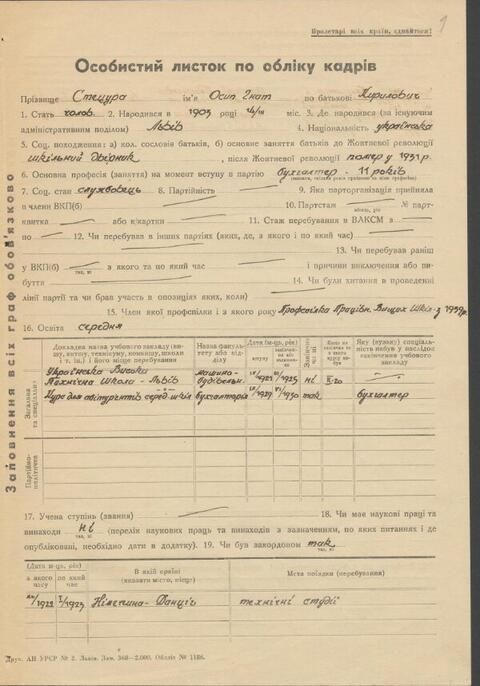 9
Пролетарі всіх країн, єднайтеся!
Особистий листок по обліку кадрів
Прізвище Стецура ім'я Осип Ігнат по батькові Кирилович
1. Стать чолов. 2. Народився в 1903 році 4/III міс. 3. Де народився (за існуючим
адміністративним поділом) Львів 4. Національність українська
5. Соц. походження: а) кол. сословія батьків, б) основне заняття батьків до Жовтневої революції
шкільний двірник, після Жовтневої революції помер у 1931 р.
6. Основна професія (заняття) на момент вступу в партію бухгалтер - 11 років
7. Соц. стан службовець 8. Партійність 9. Яка парторганізація прийняла
в члени ВКП(б) 10. Партстаж № парт-
місяць, рік
квитка або к/картки 11. Стаж перебування в ВЛКСМ з
по 12. Чи перебував в інших партіях (яких, де, з якого і по який час)
13. Чи перебував раніш
у ВКП(б) з якого та по який час і причини виключення або ви-
так, ні
буття 14. Чи були хитання в проведенні
лінії партії та чи брав участь в опозиціях яких, коли)
15. Член якої профспілки і з якого року Профспілка Працівн. Вищих Шкіл з 1939 р.
16. Освіта середня
Заповнення всіх граф обов'язково
Загальна та спеціальна
Докладна назва учбового закладу (вищу, втузу, технікуму, комвишу, школи і т. ін.) і його місце перебування
Назва факультету або відділу
Дата (м-ць, рік)
вступу
Закінчив чи ні
Яку (вузьку) спеціальність набув у наслідок закінчення учбового закладу
Українська Висока Технічна Школа - Львів машино-будівельн. 1925 ні
Курс для абітурієнтів серед. шкіл бухгалтерія 1929 1930 так бухгалтер
Партійно-політична
17. Учена ступінь (звання) 18. Чи має наукові праці та
винаходи ні (перелік наукових праць та винаходів з зазначенням, по яких питаннях і де
так, ні
опубліковані, необхідно дати в додатку). 19. Чи був закордоном так
так, ні
(Дата м-ць, рік)
з якого часу
по який час
В якій країні
(вказати місто, місце)
Мета поїздки (перебування)
1922 I/1923 Німеччина - Данціг технічні студії
Друк. АН УРСР № 2. Львів. Зам. 368—2.000. Обліт № 1186.